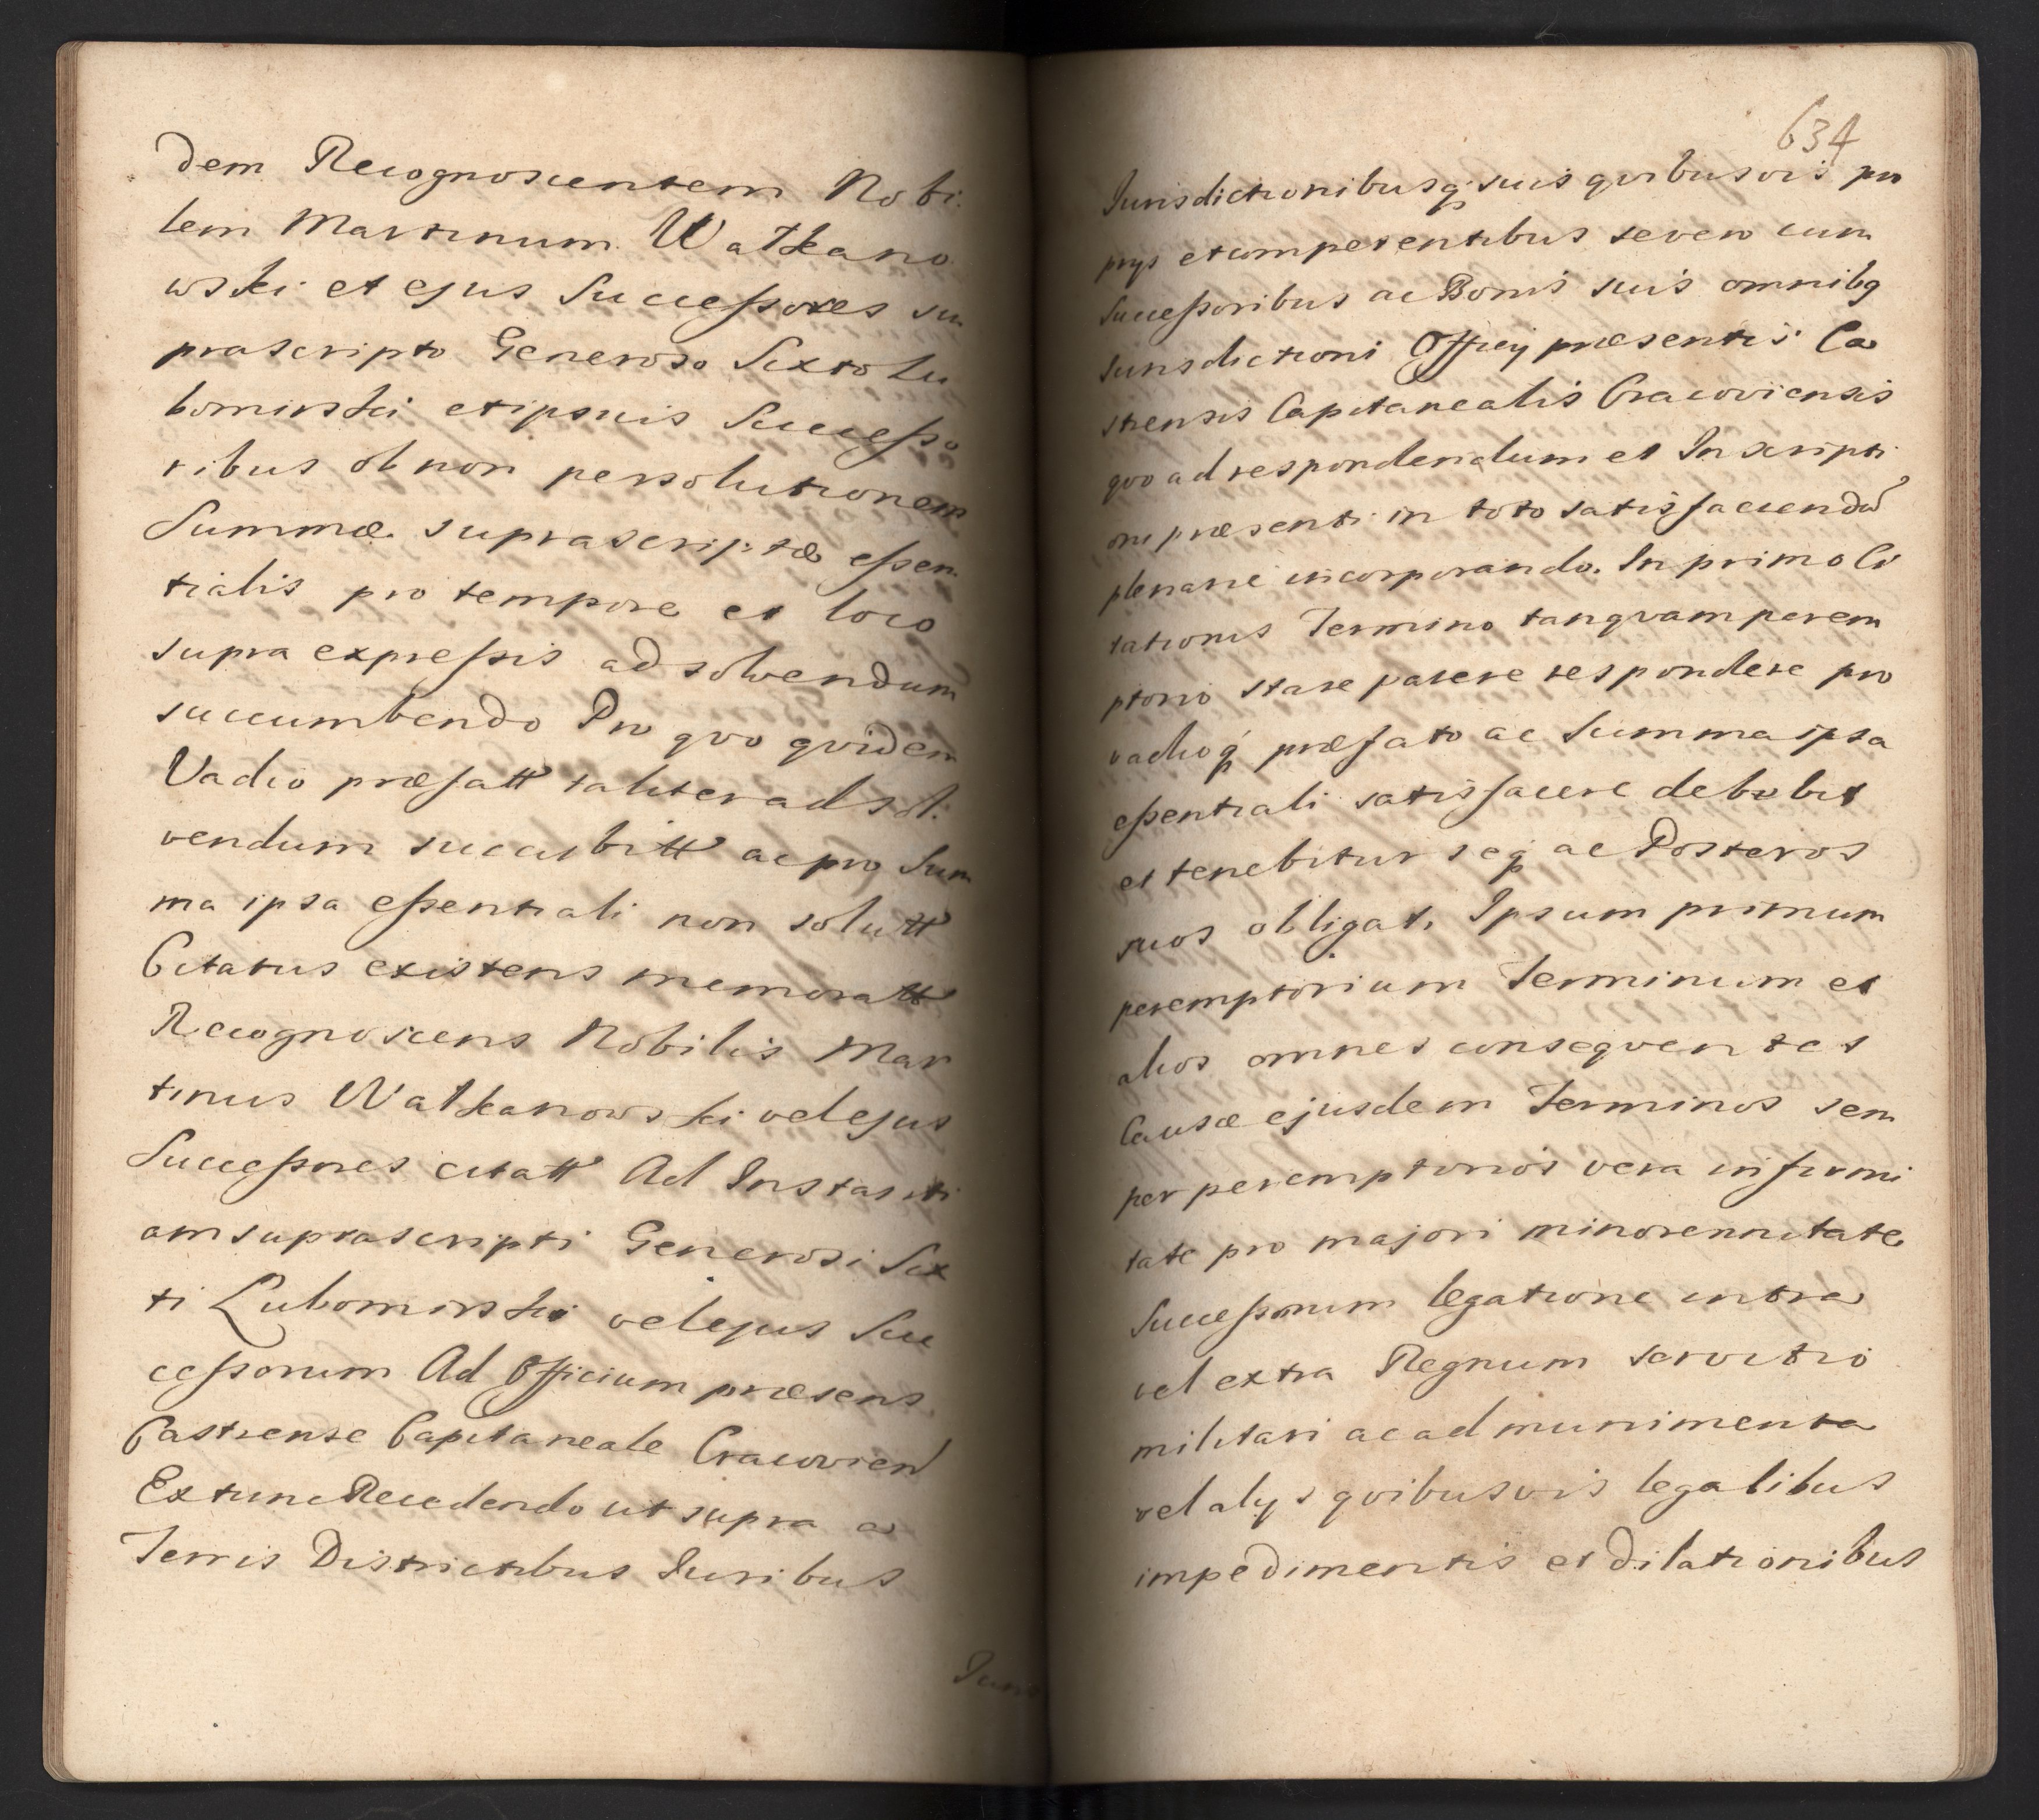 dem Recognoscentem Nobi
lem Martinum Watkano
wski et ejus Successores su
prascripto Generoso Sixto Lu
bomirski et ipsius Successo
ribus ob non persolutionem
Summæ suprascriptæ essen
tialis pro tempore et loco
supra expressis ad solvendum
succumbendo Pro quo quidem
Vadio præfatt taliter ad sol
vendum succubitt ac pro Sum
ma ipsa essentiali non solutt
Citatus existens memoratt
Recognoscens Nobilis Mar
tinus Watkanowski vel ejus
Successores citatt Ad Instanti
am suprascripti Generosi Six
ti Lubomirski vel ejus Suc
cessorum Ad Officium præsens
Castrense Capitaneale Cracovien
Extunc Recedendo ut supra a
Terris Districtibus Juribus
Juris
634
Jurisdictionibusq suis quibusvis pro
prys et competentibus se vero cum
Successoribus ac Bonis suis omnibq
Jurisdictioni Officy præsentis Ca
strensis Capitanealis Cracoviensis
quo ad respondendum et Inscripti
oni præsenti in toto satisfaciendũ
plenarie incorporando. In primo Ci
tationis Termino tanquam perem
ptorio stare parere respondere pro
vadioq præfato ac Summa ipsa
essentiali satisfacere debebit
et tenebitur seq ac Posteros
suos obligat. Ipsum primum
peremptorium Terminum et
alios omnes consequentes
Causæ ejusdem Terminos sem
per peremptorios vera infirmi
tate pro majori minorennitate
Successorum legatione intra
vel extra Regnum servitio
militari ac ad munimenta
vel alys quibusvis legalibus
impedimentis et dilationibus